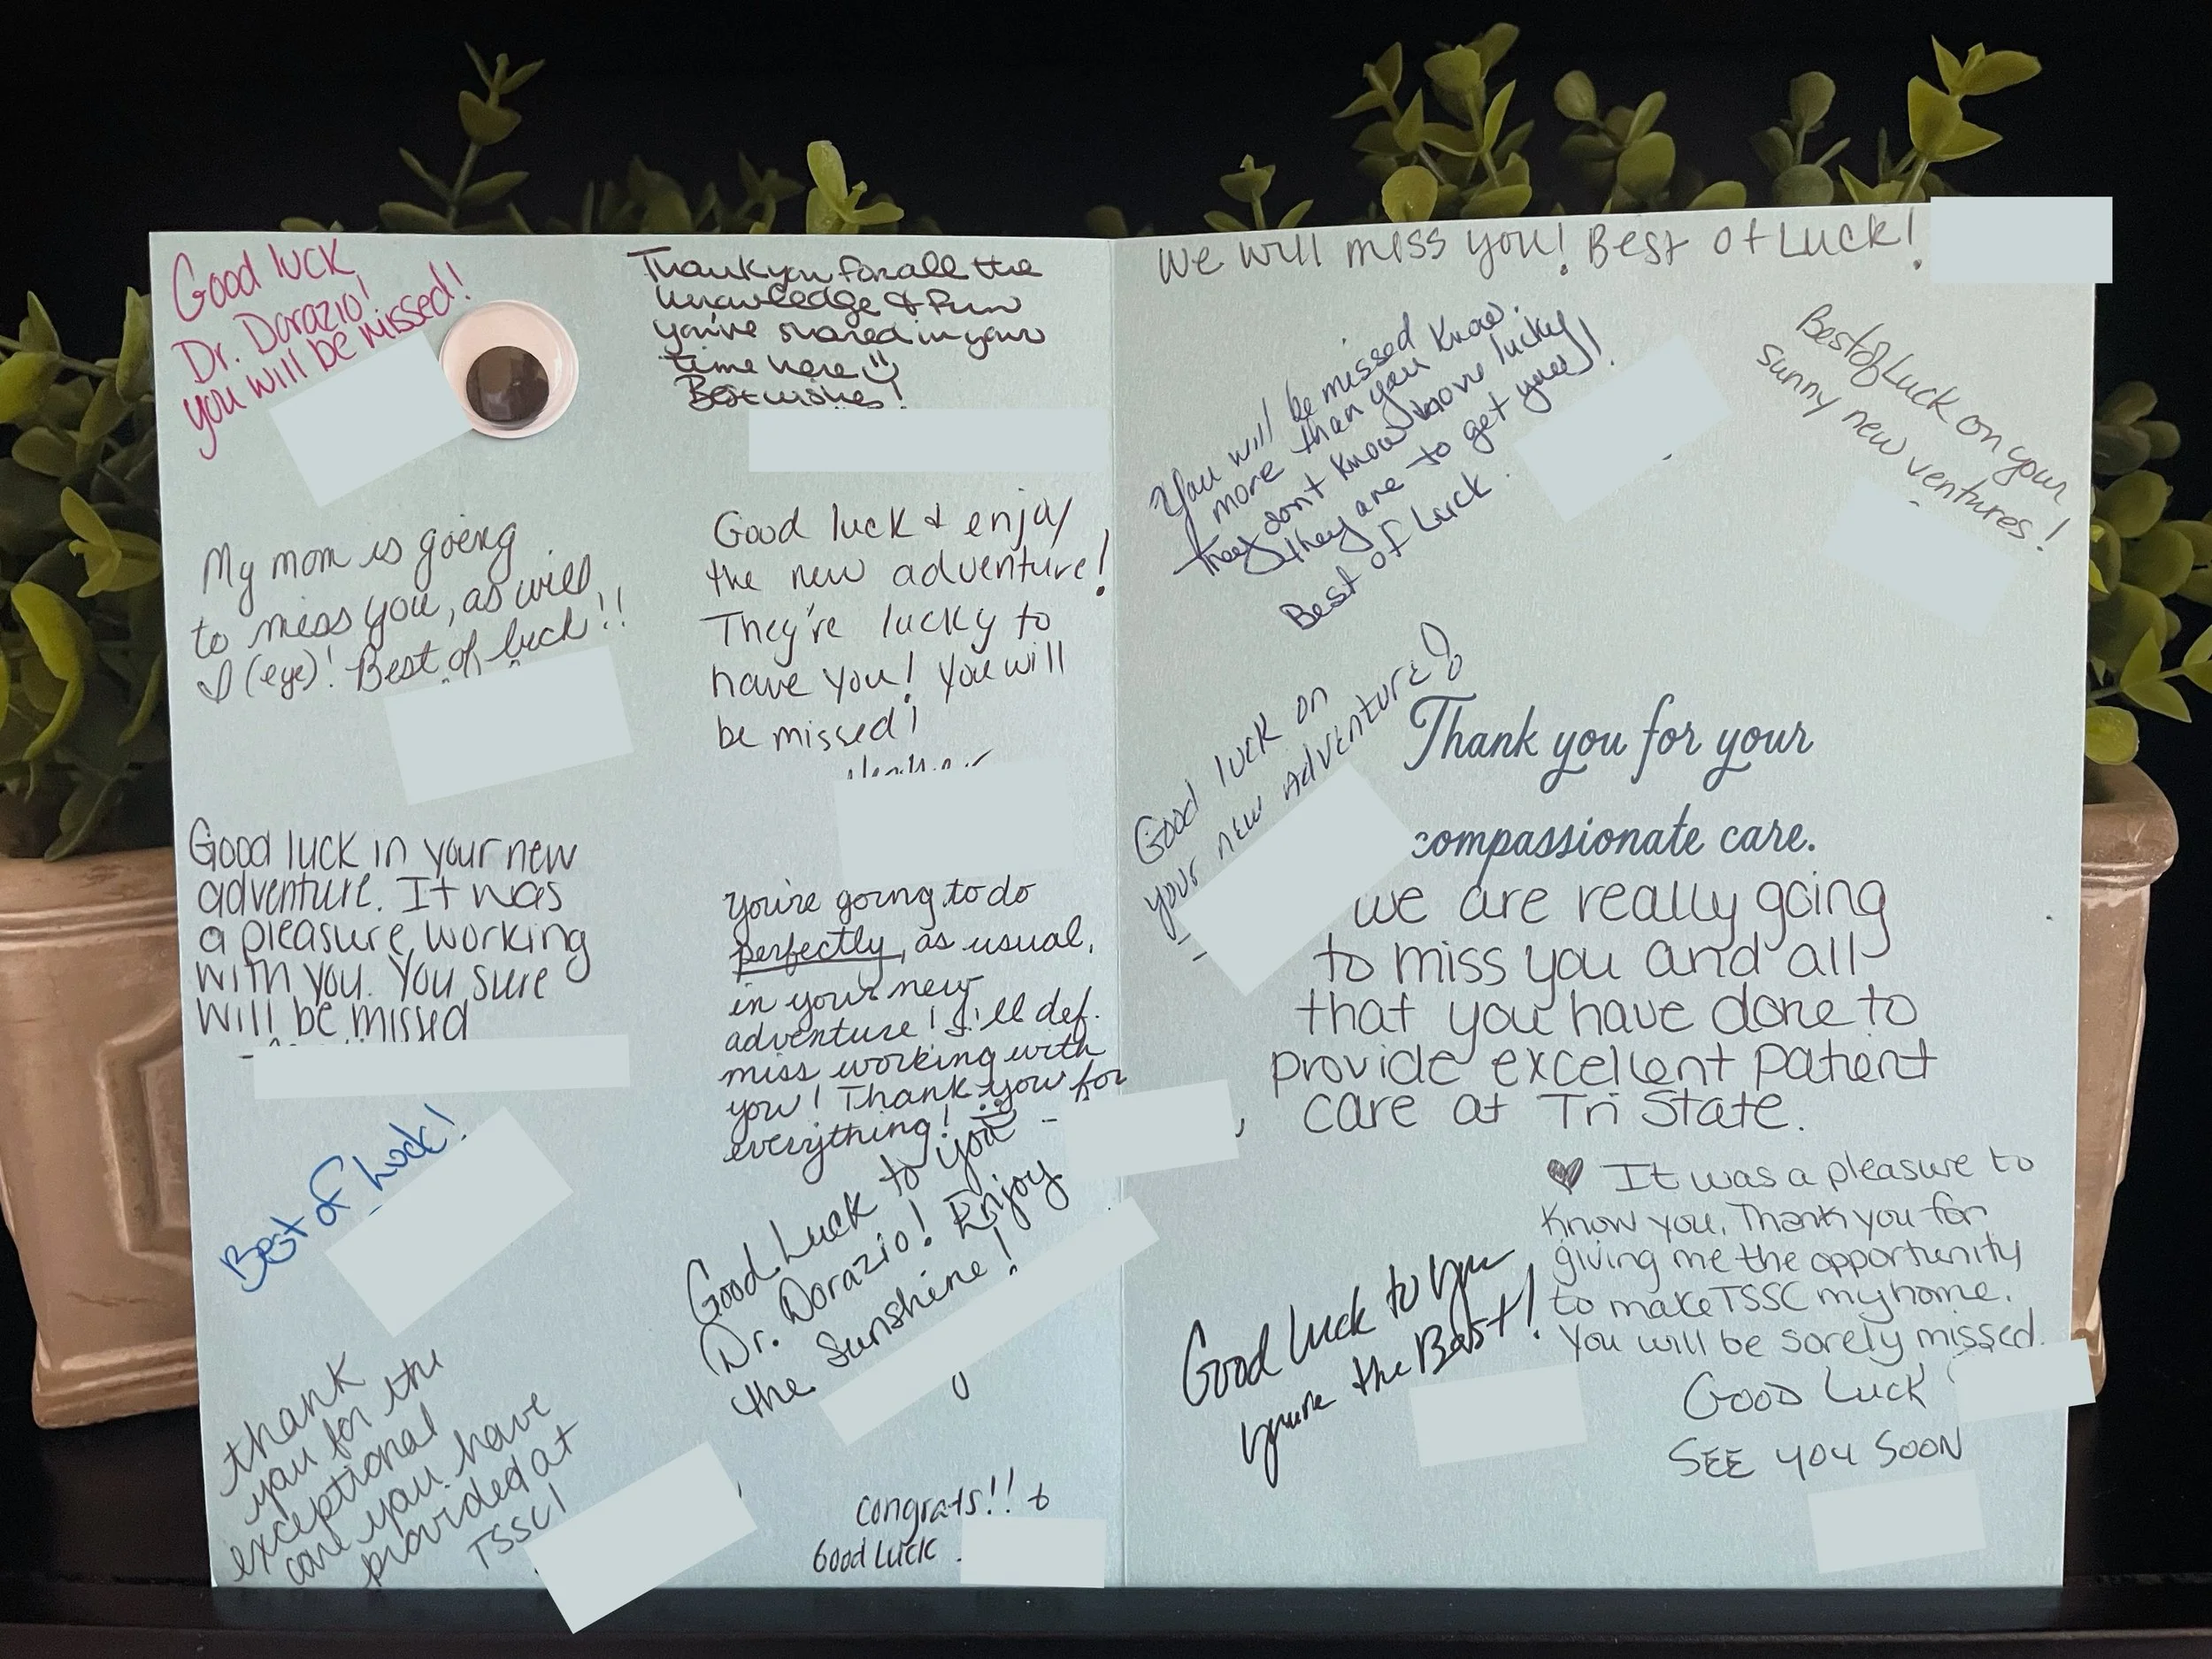 Good luck
Dr. Dorazio!
you will be missed!
Thank you for all the
knowledge & fun
you've shared in your
time here
Best wishes!
My mom is going
to miss you, as will
I (eye)! Best of luck!!
Good luck & enjoy
the new adventure!
They're lucky to
have you! You will
be missed!
Good luck in your new
adventure. It was
a pleasure working
with you. You sure
will be missed
You're going to do
perfectly, as usual,
in your new
adventure! I'll def.
miss working with
you! Thank you for
everything!
Best of Luck!
Good Luck to you
Dr. Dorazio! Enjoy
the Sunshine!
thank
you for the
exceptional
care you have
provided at
TSSC!
Congrats!! +
Good Luck
We will miss you! Best of Luck!
You will be missed
more than you know.
They don't know how lucky
they are to get you!
Best of Luck
Best of Luck on your
sunny new ventures!
Good luck on
your new Adventure!
Thank you for your
compassionate care.
we are really going
to miss you and all
that you have done to
provide excellent patient
care at Tri State.
It was a pleasure to
know you. Thank you for
giving me the opportunity
to make TSSC my home.
You will be sorely missed.
Good luck to you
you're the Best!
Good Luck
SEE YOU SOON